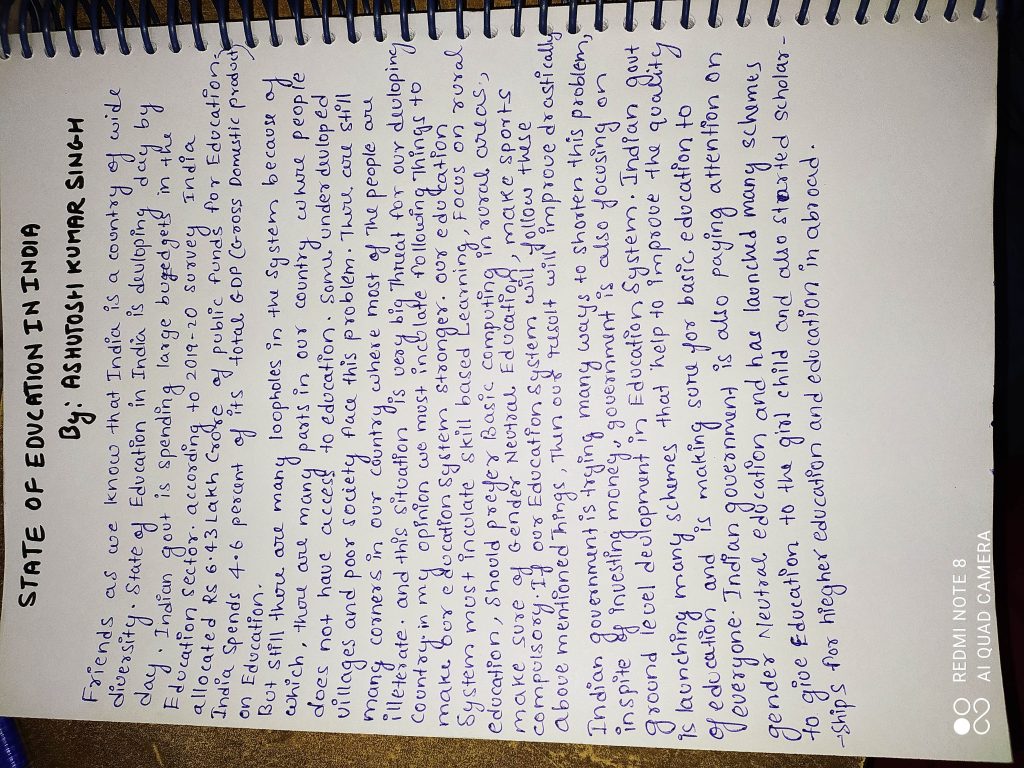 STATE OF EDUCATION IN INDIA
By: ASHUTOSH KUMAR SINGH
Friends as we know that India is a country of wide
diversity. State of Education in India is devloping day by
day. Indian govt is spending large budgets in the
Education sector. according to 2019-20 survey India
allocated Rs 6.43 Lakh Crore of public funds for Education,
India Spends 4.6 percent of its total GDP (Gross Domestic product)
on Education.
But still there are many loopholes in the system because of
which, there are many parts in our country where people
does not have access to education. Some underdevloped
villages and poor society face this problem. There are still
many corners in our country where most of the people are
illeterate. and this situation is very big Threat for our devloping
country. in my opinion we most inculate following Things to
make our education system stronger. our education
System must inculate skill based Learning, Focus on rural
education, Should prefer Basic computing in rural areas,
make sure of Gender Neutral Education, make sports
compulsory. If our Education system will follow these
above mentioned Things, Then our result will improve drastically
Indian government is trying many ways to shorten this problem,
inspite of investing money, government is also focusing on
ground level devlopment in Education System. Indian govt
is launching many schemes that help to improve the quality
of education and is making sure for basic education to
everyone. Indian government is also paying attention on
gender Neutral education and has launched many schemes
to give Education to the girl child and also started scholar-
-ships for hiegher education and education in abroad.
REDMI NOTE 8
AI QUAD CAMERA